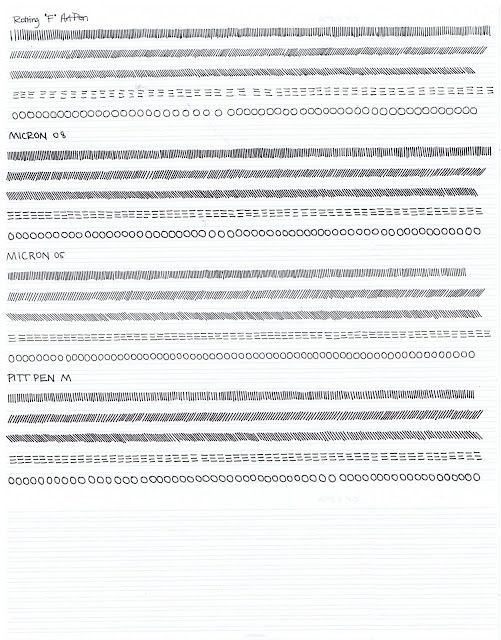 Rotring "F" ArtPen
MICRON 08
MICRON 05
PITT PEN M